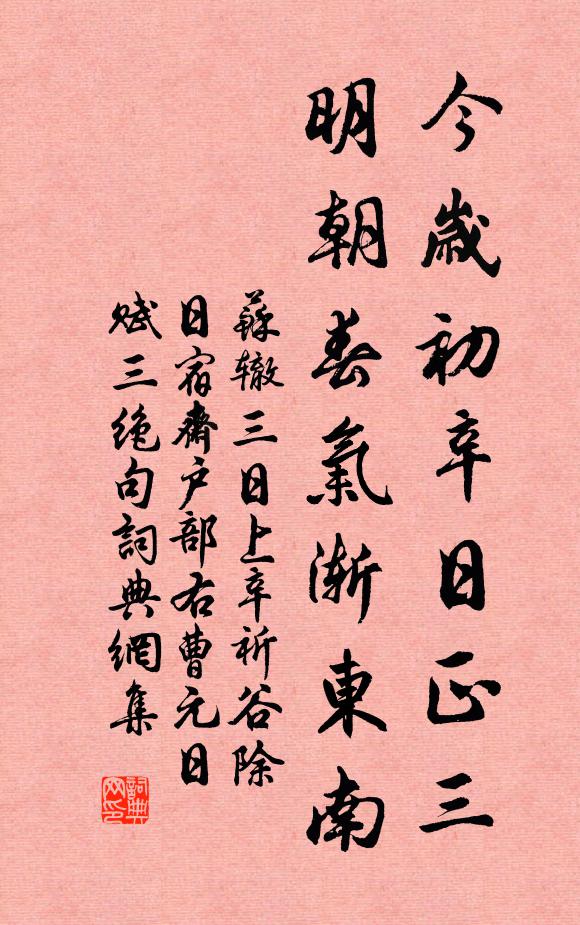 今歲初辛日正三
明朝春氣漸東南
蘇辙三日上辛祈谷除
日宿齋户部右曹元日
賦三绝句詞典網集
詞典网印